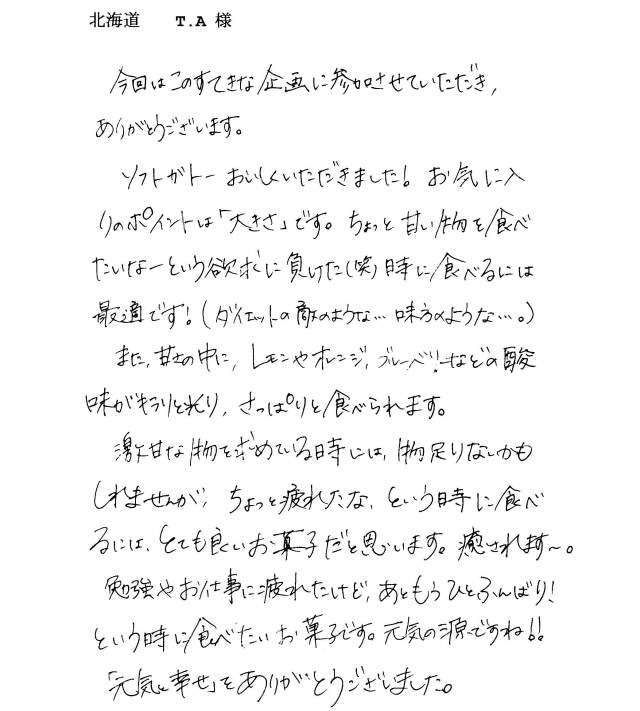 北海道 T.A 様
今回はこのすてきな企画に参加させていただき,
ありがとうございます。
ソフトガトー おいしくいただきました! お気に入
りのポイントは「大きさ」です。ちょっと甘い物を食べ
たいなーという欲求に負けた(笑)時に食べるには
最適です!(ダイエットの敵のような… 味方のような…。)
また, 甘さの中に, レモンやオレンジ, ブルーベリーなどの酸
味がキラリと光り, さっぱりと食べられます。
激甘な物を求めている時には, 物足りないかも
しれませんが, ちょっと疲れたな, という時に食べ
るには, とても良いお菓子だと思います。癒されます〜。
勉強やお仕事に疲れたけど, あともうひとふんばり!
という時に食べたいお菓子です。元気の源ですね!!
「元気と幸せ」をありがとうございました。